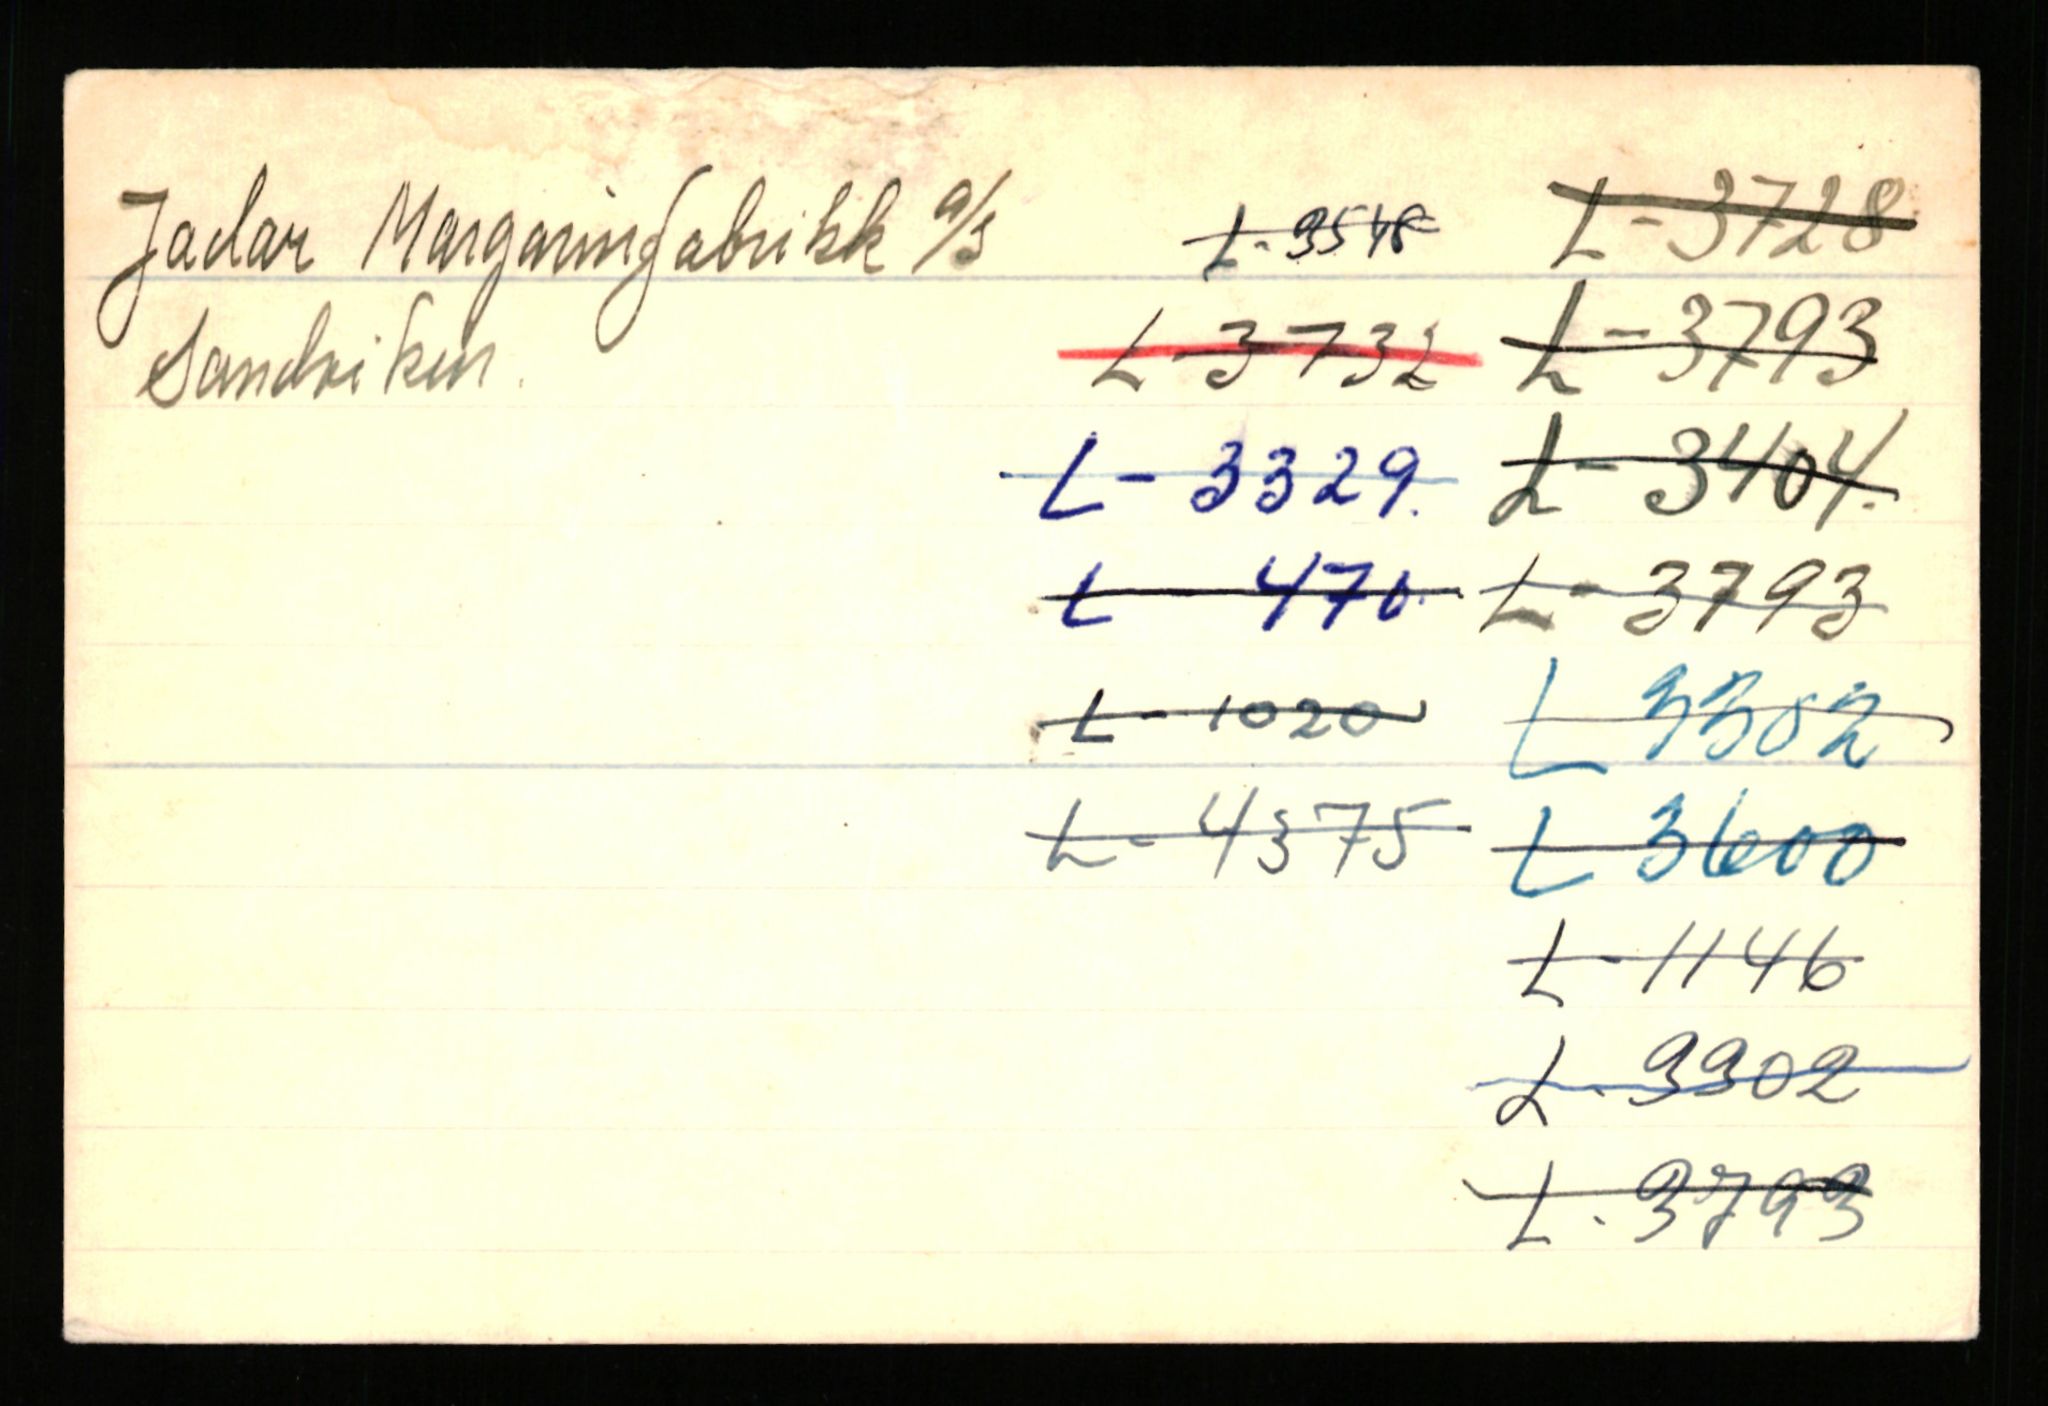 Jadar Margarinfabrikk a/s
Sandviken.
L-3548
L-3732
L-3329.
L-470.
L-1020
L-4375
L-3728
L-3793
L-3404.
L-3793
L 3302
L 3600
L-1146
L-3302
L-3793